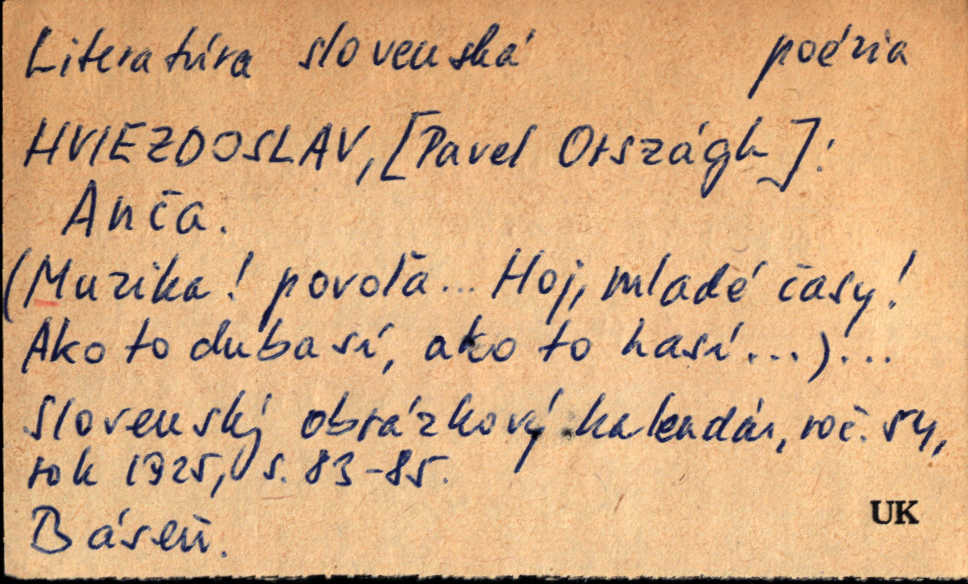 Literatúra slovenská poézia
HVIEZDOSLAV, [Pavel Országh]:
Anča.
(Muzika! povoľa... Hoj, mladé časy!
Ako to dubasí, ako to hasí...)...
Slovenský obrázkový kalendár, roč. 54,
rok 1925, s. 83-85.
Báseň.
UK